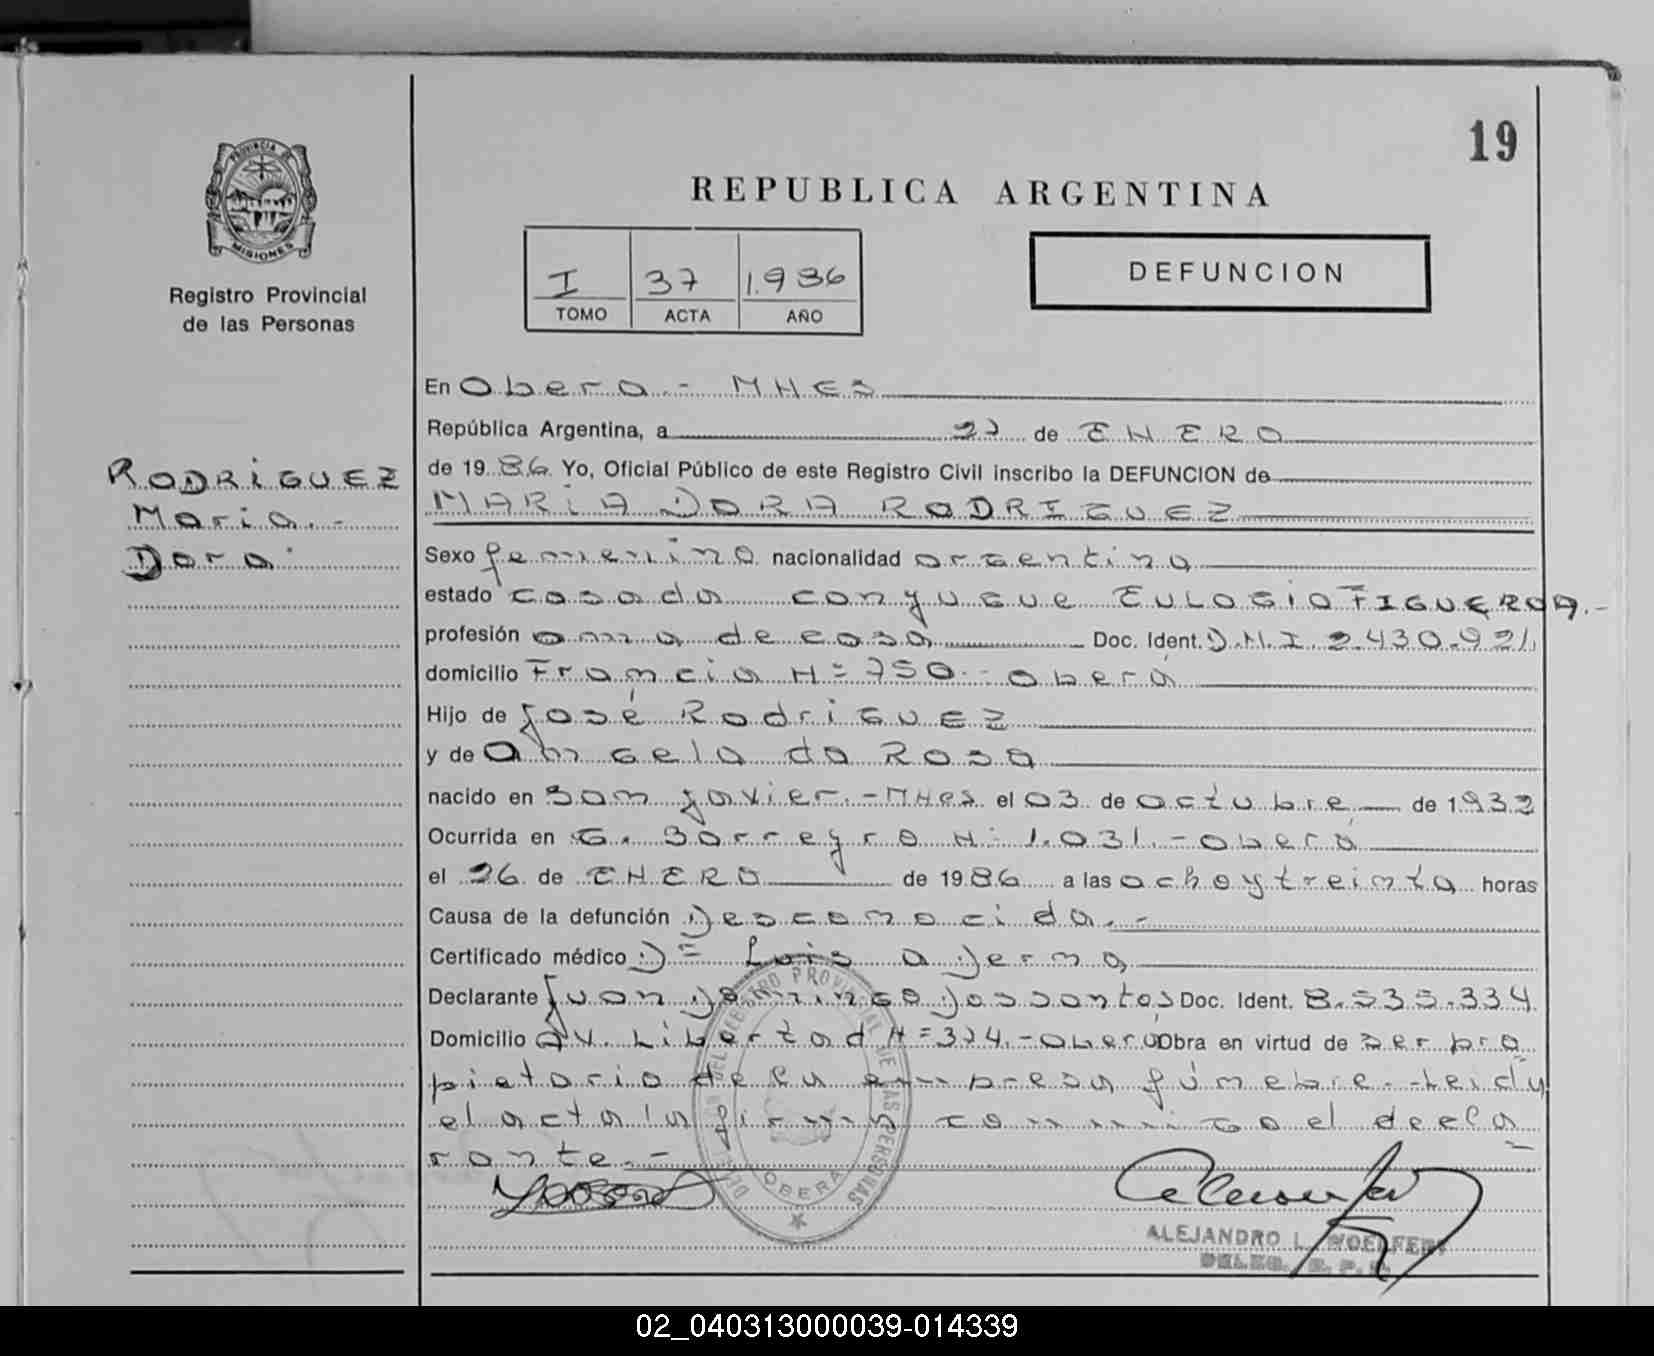 19
PROVINCIA DE
MISIONES
Registro Provincial
de las Personas
REPUBLICA ARGENTINA
I 37 1.986
TOMO ACTA AÑO
DEFUNCION
RODRIGUEZ
Maria.-
Dora
En Obera.- MNES
República Argentina, a 27 de ENERO
de 19 86 Yo, Oficial Público de este Registro Civil inscribo la DEFUNCION de
MARIA DORA RODRIGUEZ
Sexo femenino nacionalidad argentina
estado casada conyugue EULOGIO FIGUEROA.-
profesión ama de casa Doc. Ident. D.N.I. 2.430.921
domicilio Francia N= 750.- oberá
Hijo de José RodriGUEZ
y de Angela da Rosa
nacido en San Javier.-MNes. el 03 de octubre de 1932
Ocurrida en G. Barreyro N= 1.031.- oberá
el 26 de ENERO de 19 86 a las ochoytreinta horas
Causa de la defunción Desconocida.-
Certificado médico D= Luis a Derna
Declarante Juan Domingo Dossantos Doc. Ident. 8.535.334
Domicilio AV. Libertad N=324.- oberá Obra en virtud de ser pro
pietario de la empresa fúnebre.-Leida
el acta la firma conmigo el decla
rante.-
DEL REGISTRO PROVINCIAL DE LAS PERSONAS
OBERA
ALEJANDRO L. WOELFERT
DELEG. R. P. P.
02_040313000039-014339